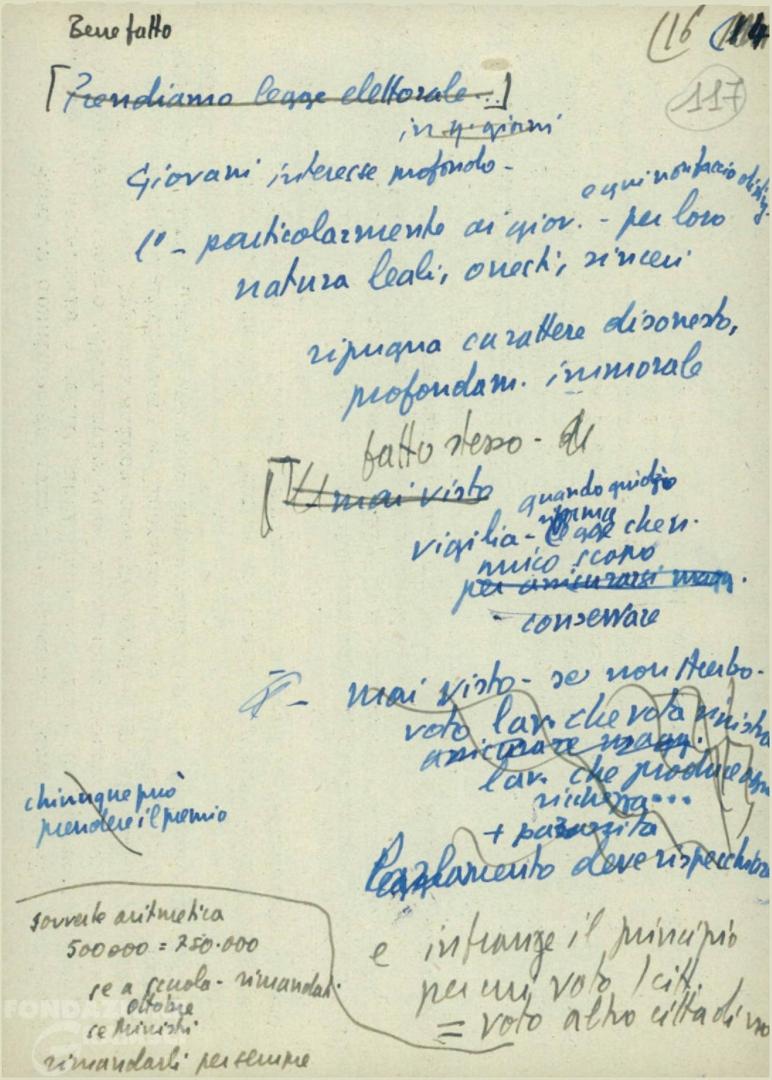 Bene fatto
(16 14
117
[Prendiamo legge elettorale...]
in 4 giorni
Giovani interesse profondo -
e qui non faccio disting.
1° - particolarmente ai giov. - per loro
natura leali, onesti, sinceri
ripugna carattere disonesto,
profondam. immorale
fatto stesso - di
[mai visto
quando giudizio
norma
vigilia - legge che n.
unico scopo
per assicurarsi magg.
- conservare
II - mai visto - se non turbo -
voto lav. che vota sinistra
assicurare magg.
lav. che produce ogni
ricchezza...
+ parassita
Parlamento deve rispecchiare
chiunque può
prendere il premio
sovverte aritmetica
500000 = 750.000
se a scuola - rimandati
ottobre
se Ministri
rimandarli per sempre
e infrange il principio
per cui voto 1 citt.
= voto altro cittadino
FONDAZI